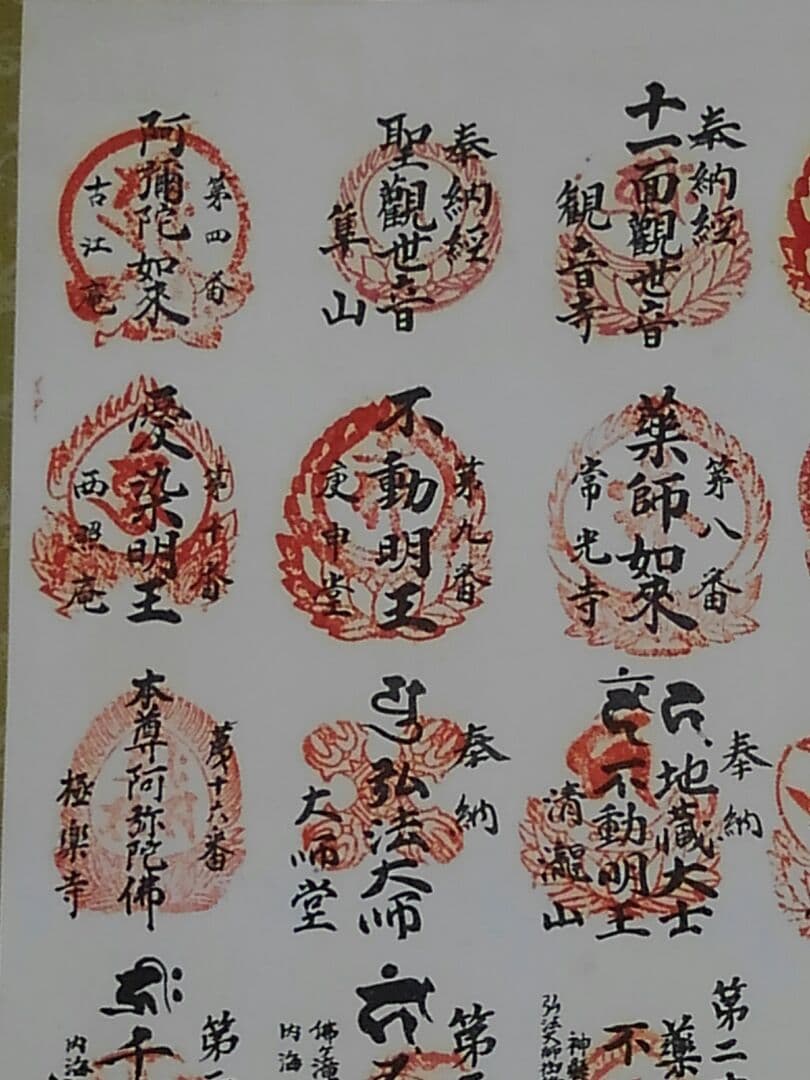 奉納經
十一面觀世音
観音寺
奉納經
聖觀世音
隼山
第四番
阿彌陀如来
古江庵
第八番
薬師如来
常光寺
第九番
不動明王
庚申堂
第十番
愛染明王
西照庵
奉納
地藏大士
不動明王
清瀧山
奉納
弘法大師
大師堂
第十六番
本尊阿弥陀佛
極楽寺
第二
薬
不
神
弘法大師
第
佛ヶ滝
内海
第
千
内海